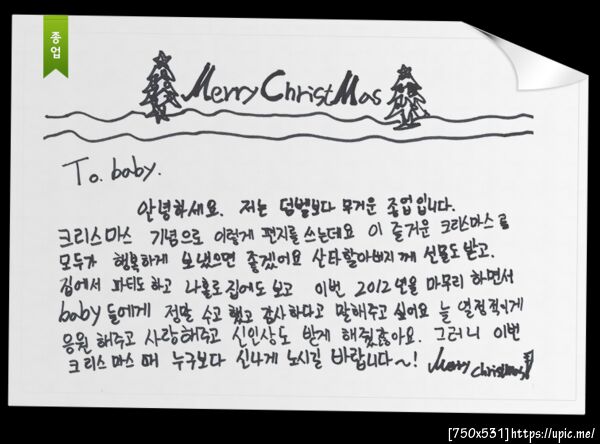 종업
Merry Christmas
To. baby.
안녕하세요. 저는 덤벨보다 무거운 종업입니다.
크리스마스 기념으로 이렇게 편지를 쓰는데요 이 즐거운 크리스마스를
모두가 행복하게 보냈으면 좋겠어요 산타할아버지께 선물도 받고.
집에서 파티도 하고 나홀로 집에도 보고 이번 2012년을 마무리 하면서
baby들에게 정말 수고했고 감사하다고 말해주고 싶어요 늘 열정적이게
응원해주고 사랑해주고 신인상도 받게 해줬잖아요. 그러니 이번
크리스마스 때 누구보다 신나게 노시길 바랍니다~! Merry Christmas!!
[750x531]https://upic.me/